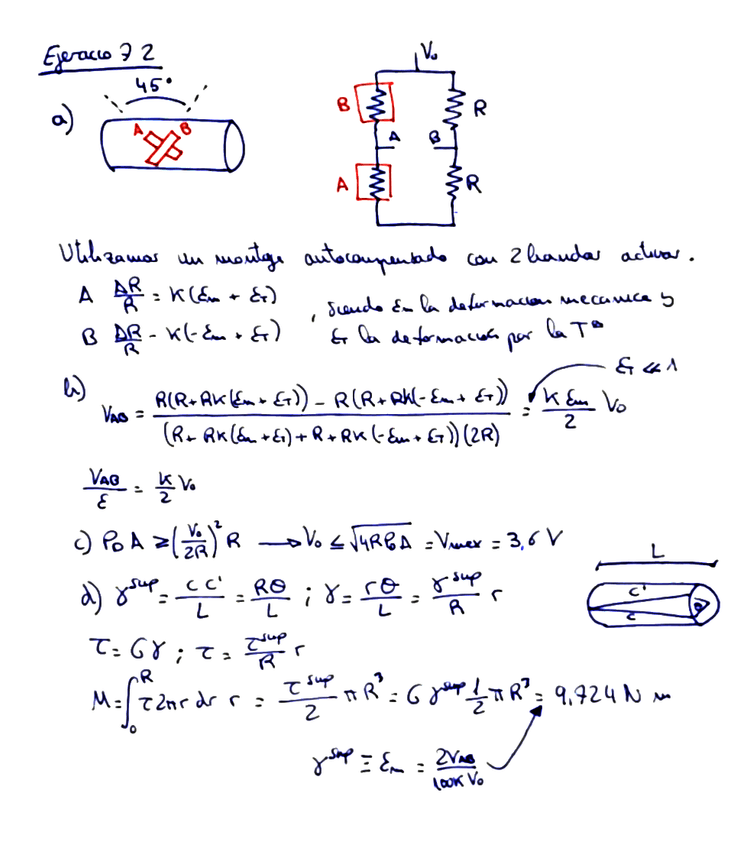 Ejercicio 7 2
45°
a)
A B
V₀
B R
A B
A R
Utilizamos un montaje autocompensado con 2 bandas activas.
A ΔR/R = K(εm + εT)
B ΔR/R = K(-εm + εT)
, siendo εm la deformacion mecanica y
εT la deformacion por la Tª
b)
εT << 1
V_AB = (R(R+RK(εm + εT)) - R(R+RK(-εm + εT))) / ((R+RK(εm+εT)+R+RK(-εm+εT))(2R)) = (K εm / 2) V₀
V_AB/ε = K/2 V₀
c) P_D A ≥ (V₀/2R)² R → V₀ ≤ √(4R P_D A) = Vmax = 3,6 V
L
d) γ^sup = CC'/L = Rθ/L ; γ = rθ/L = (γ^sup/R) r
c'
c
θ
τ = Gγ ; τ = (τ^sup/R) r
M = ∫₀^R τ 2πr dr r = (τ^sup/2) πR³ = G γ^sup 1/2 πR³ = 9,724 N m
γ^sup ≡ εm = 2V_AB / (100K V₀)